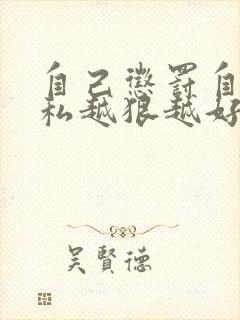 自己懲罰自
私越狠越好
吳賢德